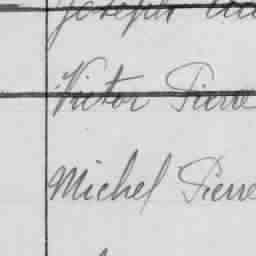 Joseph
Victor Pierre
Michel Pierre